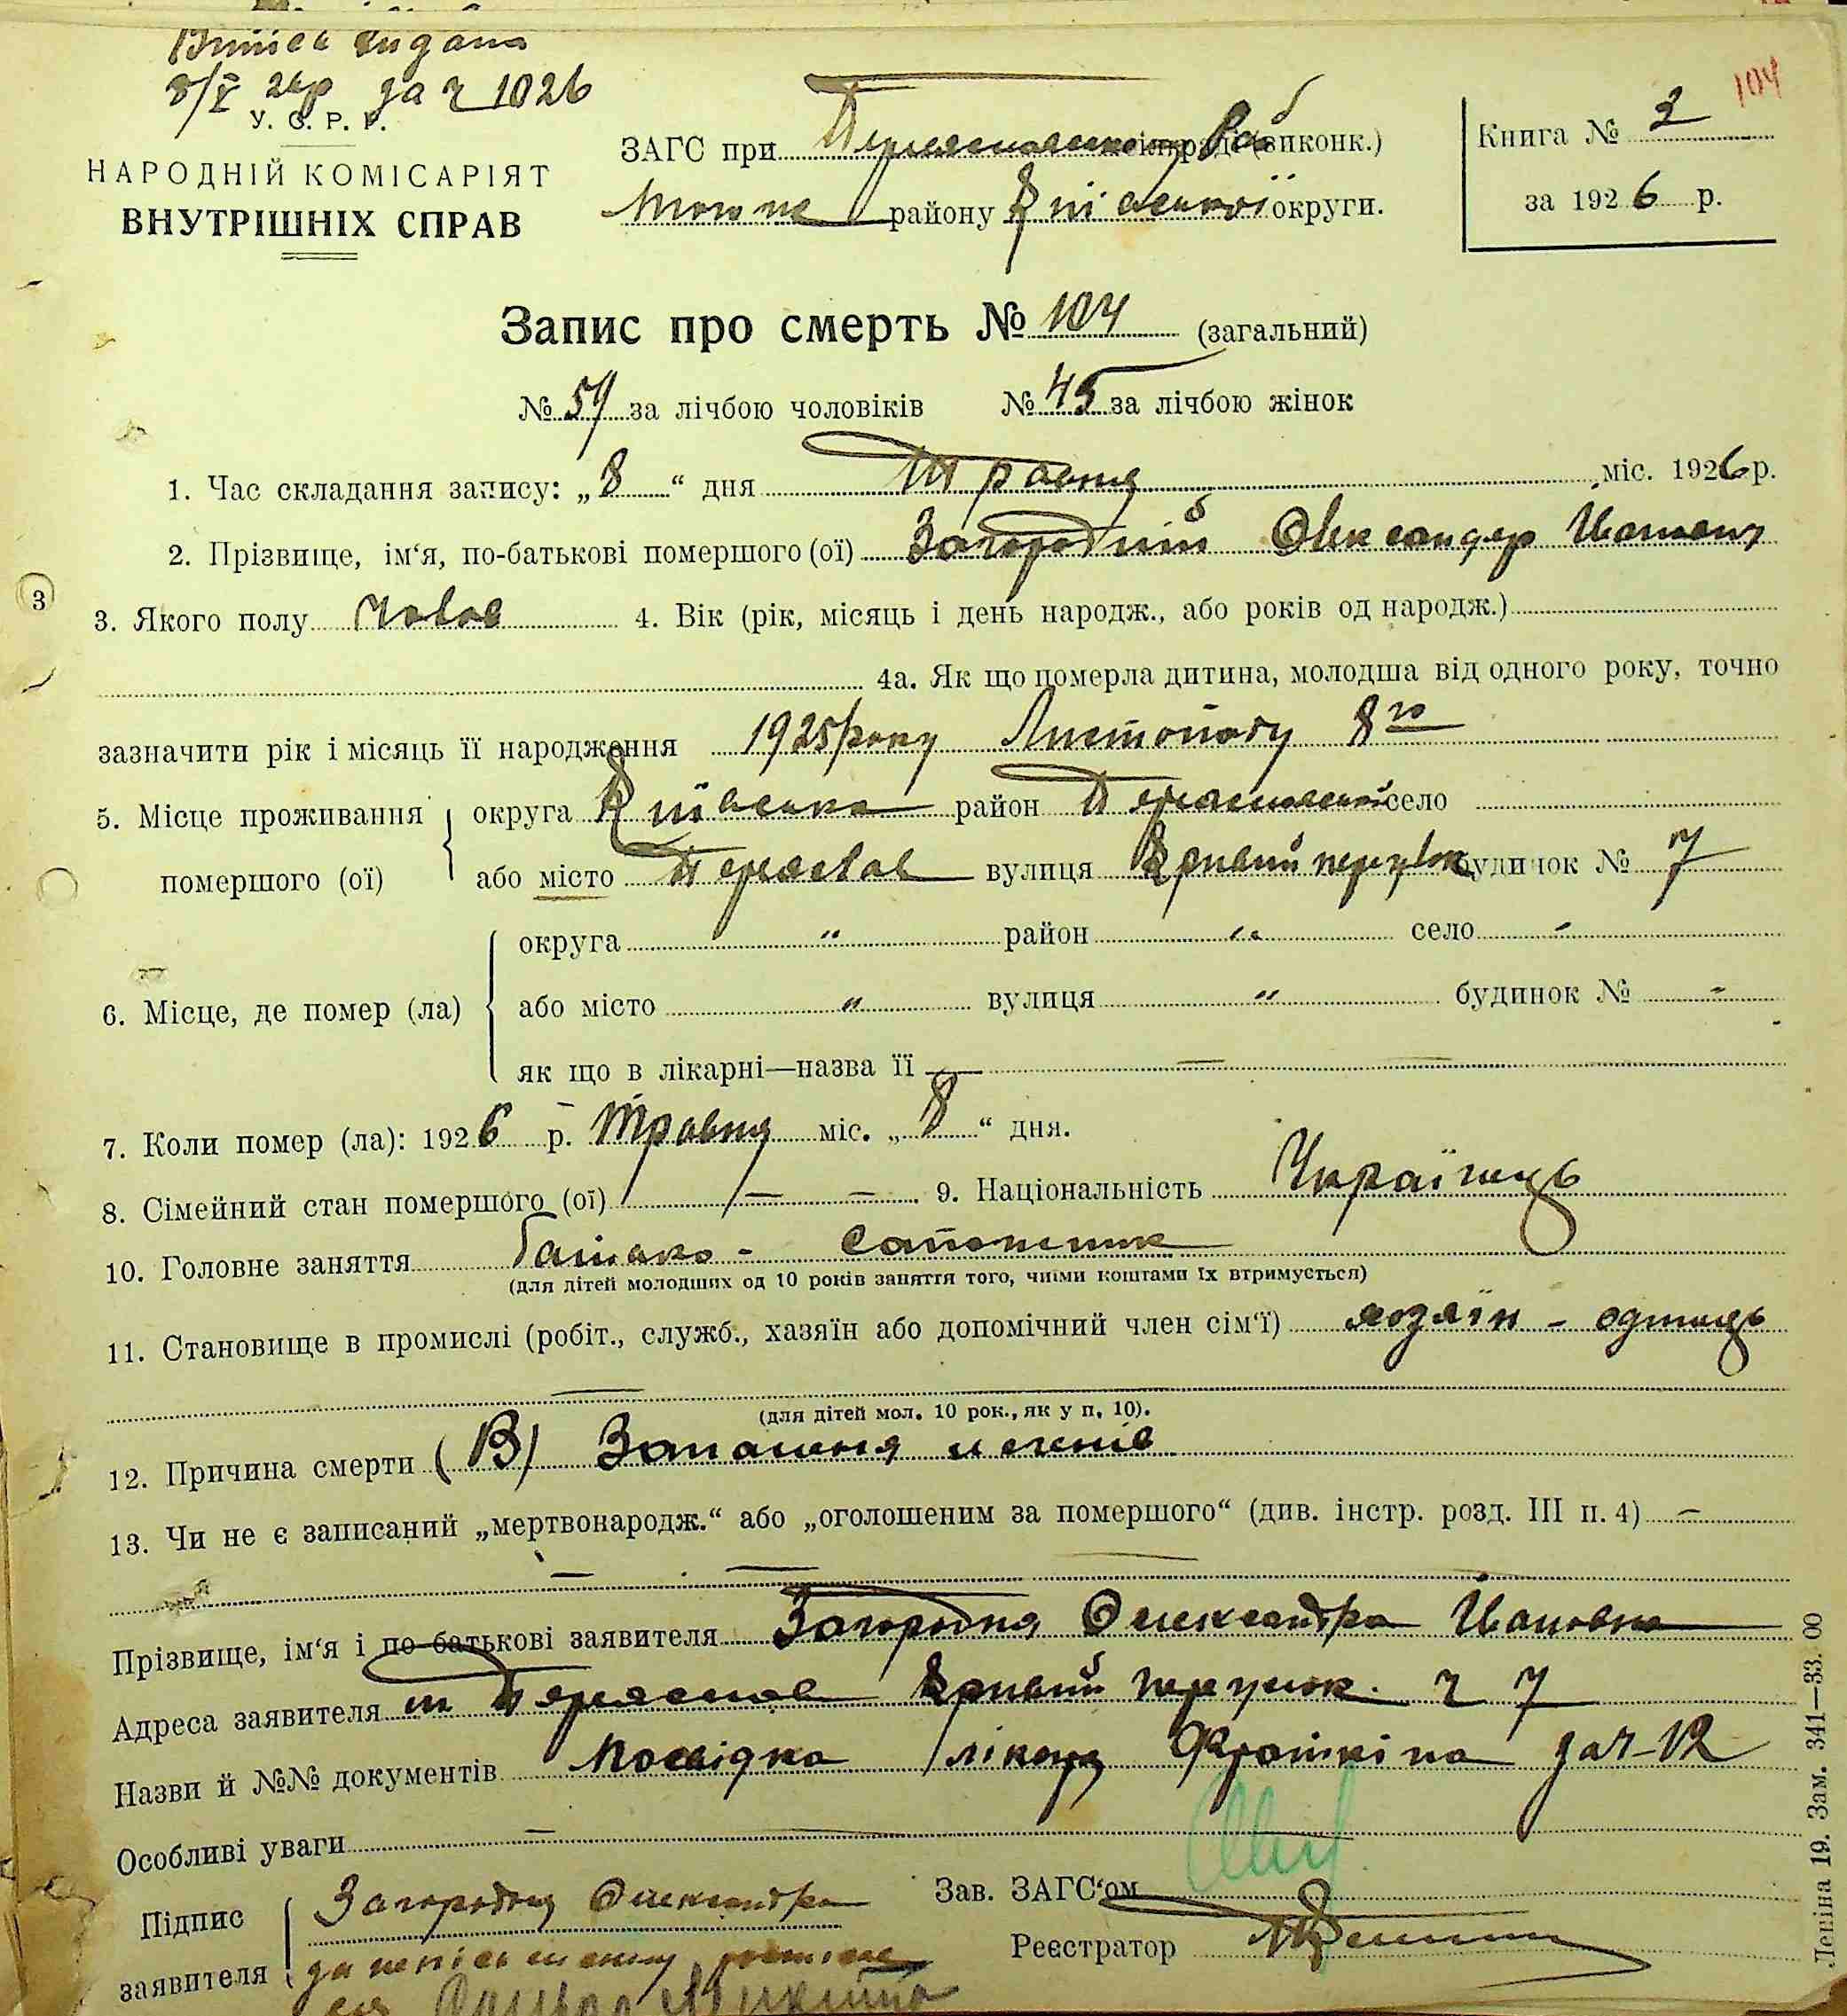 Витяг видана
8/V 26р за ч 1026
У. С. Р. Р.
НАРОДНІЙ КОМІСАРІЯТ
ВНУТРІШНІХ СПРАВ
ЗАГС при Переяславському Рай (виконк.)
району Київської округи.
Книга № 2
за 1926 р.
104
Запис про смерть № 104 (загальний)
№ 59 за лічбою чоловіків № 45 за лічбою жінок
1. Час складання запису: „8“ дня Травня міс. 1926 р.
2. Прізвище, ім‘я, по-батькові помершого (ої) Загородній Олександер Іванович
3
3. Якого полу чолов 4. Вік (рік, місяць і день народж., або років од народж.)
4а. Як що померла дитина, молодша від одного року, точно
зазначити рік і місяць її народження 1925 року Листопаду 8го
5. Місце проживання помершого (ої) округа Київська район Переяславський село
або місто Переяслав вулиця Кривий переулок будинок № 7
6. Місце, де помер (ла) округа " район " село "
або місто " вулиця " будинок № "
як що в лікарні—назва її —
7. Коли помер (ла): 1926 р. Травня міс. „8“ дня.
8. Сімейний стан помершого (ої) — — 9. Національність Українець
10. Головне заняття Батько - сапожник
(для дітей молодших од 10 років заняття того, чиїми коштами їх втримується)
11. Становище в промислі (робіт., служб., хазяїн або допомічний член сім‘ї) хозяїн - одинець
(для дітей мол. 10 рок., як у п. 10).
12. Причина смерти (В) Запалення легенів
13. Чи не є записаний „мертвонародж.“ або „оголошеним за помершого“ (див. інстр. розд. III п. 4) —
Прізвище, ім‘я і по-батькові заявителя Загородня Олександра Івановна
Адреса заявителя м Переяслав Кривий переулок. ч 7
Назви й №№ документів Посвідка лікаря за ч-12
Особливі уваги —
Підпис заявителя Загородня Олександра
за неписьменну
Зав. ЗАГС‘ом
Реєстратор
Леніна 19. Зам. 341—33.00